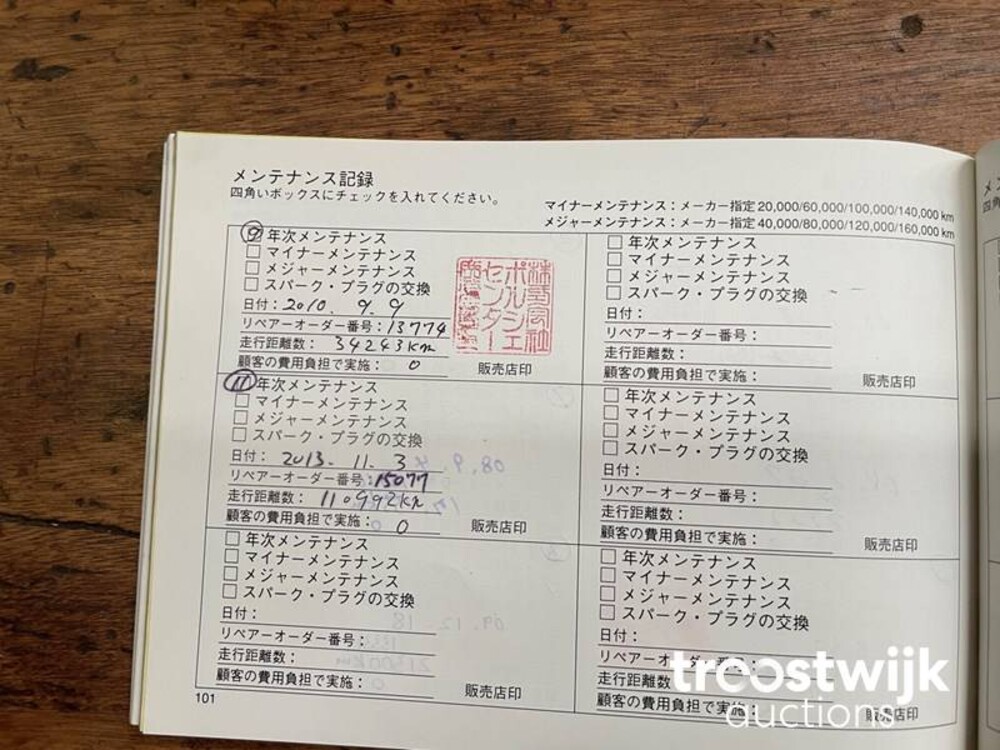 メンテナンス記録
四角いボックスにチェックを入れてください。
マイナーメンテナンス：メーカー指定 20,000/60,000/100,000/140,000 km
メジャーメンテナンス：メーカー指定 40,000/80,000/120,000/160,000 km
⑨ 年次メンテナンス
□ マイナーメンテナンス
□ メジャーメンテナンス
□ スパーク・プラグの交換
日付：2010. 9. 9
リペアーオーダー番号：13774
走行距離数： 34243km
顧客の費用負担で実施： 0
販売店印
株式会社
ポルシェ
センター
□ 年次メンテナンス
□ マイナーメンテナンス
□ メジャーメンテナンス
□ スパーク・プラグの交換
日付：
リペアーオーダー番号：
走行距離数：
顧客の費用負担で実施：
販売店印
⑪ 年次メンテナンス
□ マイナーメンテナンス
□ メジャーメンテナンス
□ スパーク・プラグの交換
日付： 2013. 11. 3
リペアーオーダー番号：15077
走行距離数： 110992km
顧客の費用負担で実施： 0
販売店印
□ 年次メンテナンス
□ マイナーメンテナンス
□ メジャーメンテナンス
□ スパーク・プラグの交換
日付：
リペアーオーダー番号：
走行距離数：
顧客の費用負担で実施：
販売店印
□ 年次メンテナンス
□ マイナーメンテナンス
□ メジャーメンテナンス
□ スパーク・プラグの交換
日付：
リペアーオーダー番号：
走行距離数：
顧客の費用負担で実施：
販売店印
□ 年次メンテナンス
□ マイナーメンテナンス
□ メジャーメンテナンス
□ スパーク・プラグの交換
日付：
リペアーオーダー番号：
走行距離数
顧客の費用負担で実施：
販売店印
101
troostwijk
auctions